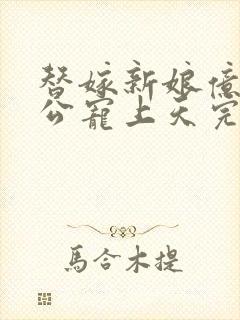 替嫁新娘億
公寵上天完
馬合木提